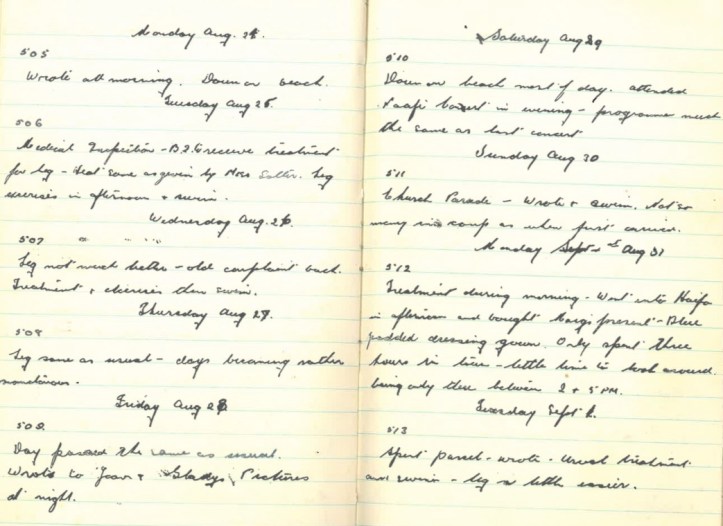 Monday Aug. 24.
505
Wrote all morning. Down on beach.
Tuesday Aug 25.
506
Medical Inspection - B.26 receive treatment
for leg - Heat same as given by Miss Salter. Leg
exercises in afternoon & swim.
Wednesday Aug. 26.
507
Leg not much better - old complaint back.
Treatment & exercises then swim.
Thursday Aug 27.
508
Leg same as usual - days becoming rather
monotonous.
Friday Aug 28
509.
Day passed the same as usual.
Wrote to Joan & Gladys, Pictures
at night.
Saturday Aug 29
510
Down on beach most of day. attended
Naafi concert in evening - programme much
the same as last concert
Sunday Aug 30
511
Church Parade - Wrote & swim. Not so
many in camp as when first arrived.
Monday Sept 1st Aug 31
512
Treatment during morning - Went into Haifa
in afternoon and bought Margi present - Blue
padded dressing gown. Only spent three
hours in town - little time to look around.
being only there between 2 & 5 PM.
Tuesday Sept 1.
513
Spent parcel - wrote - Usual treatment
and swim - leg a little easier.